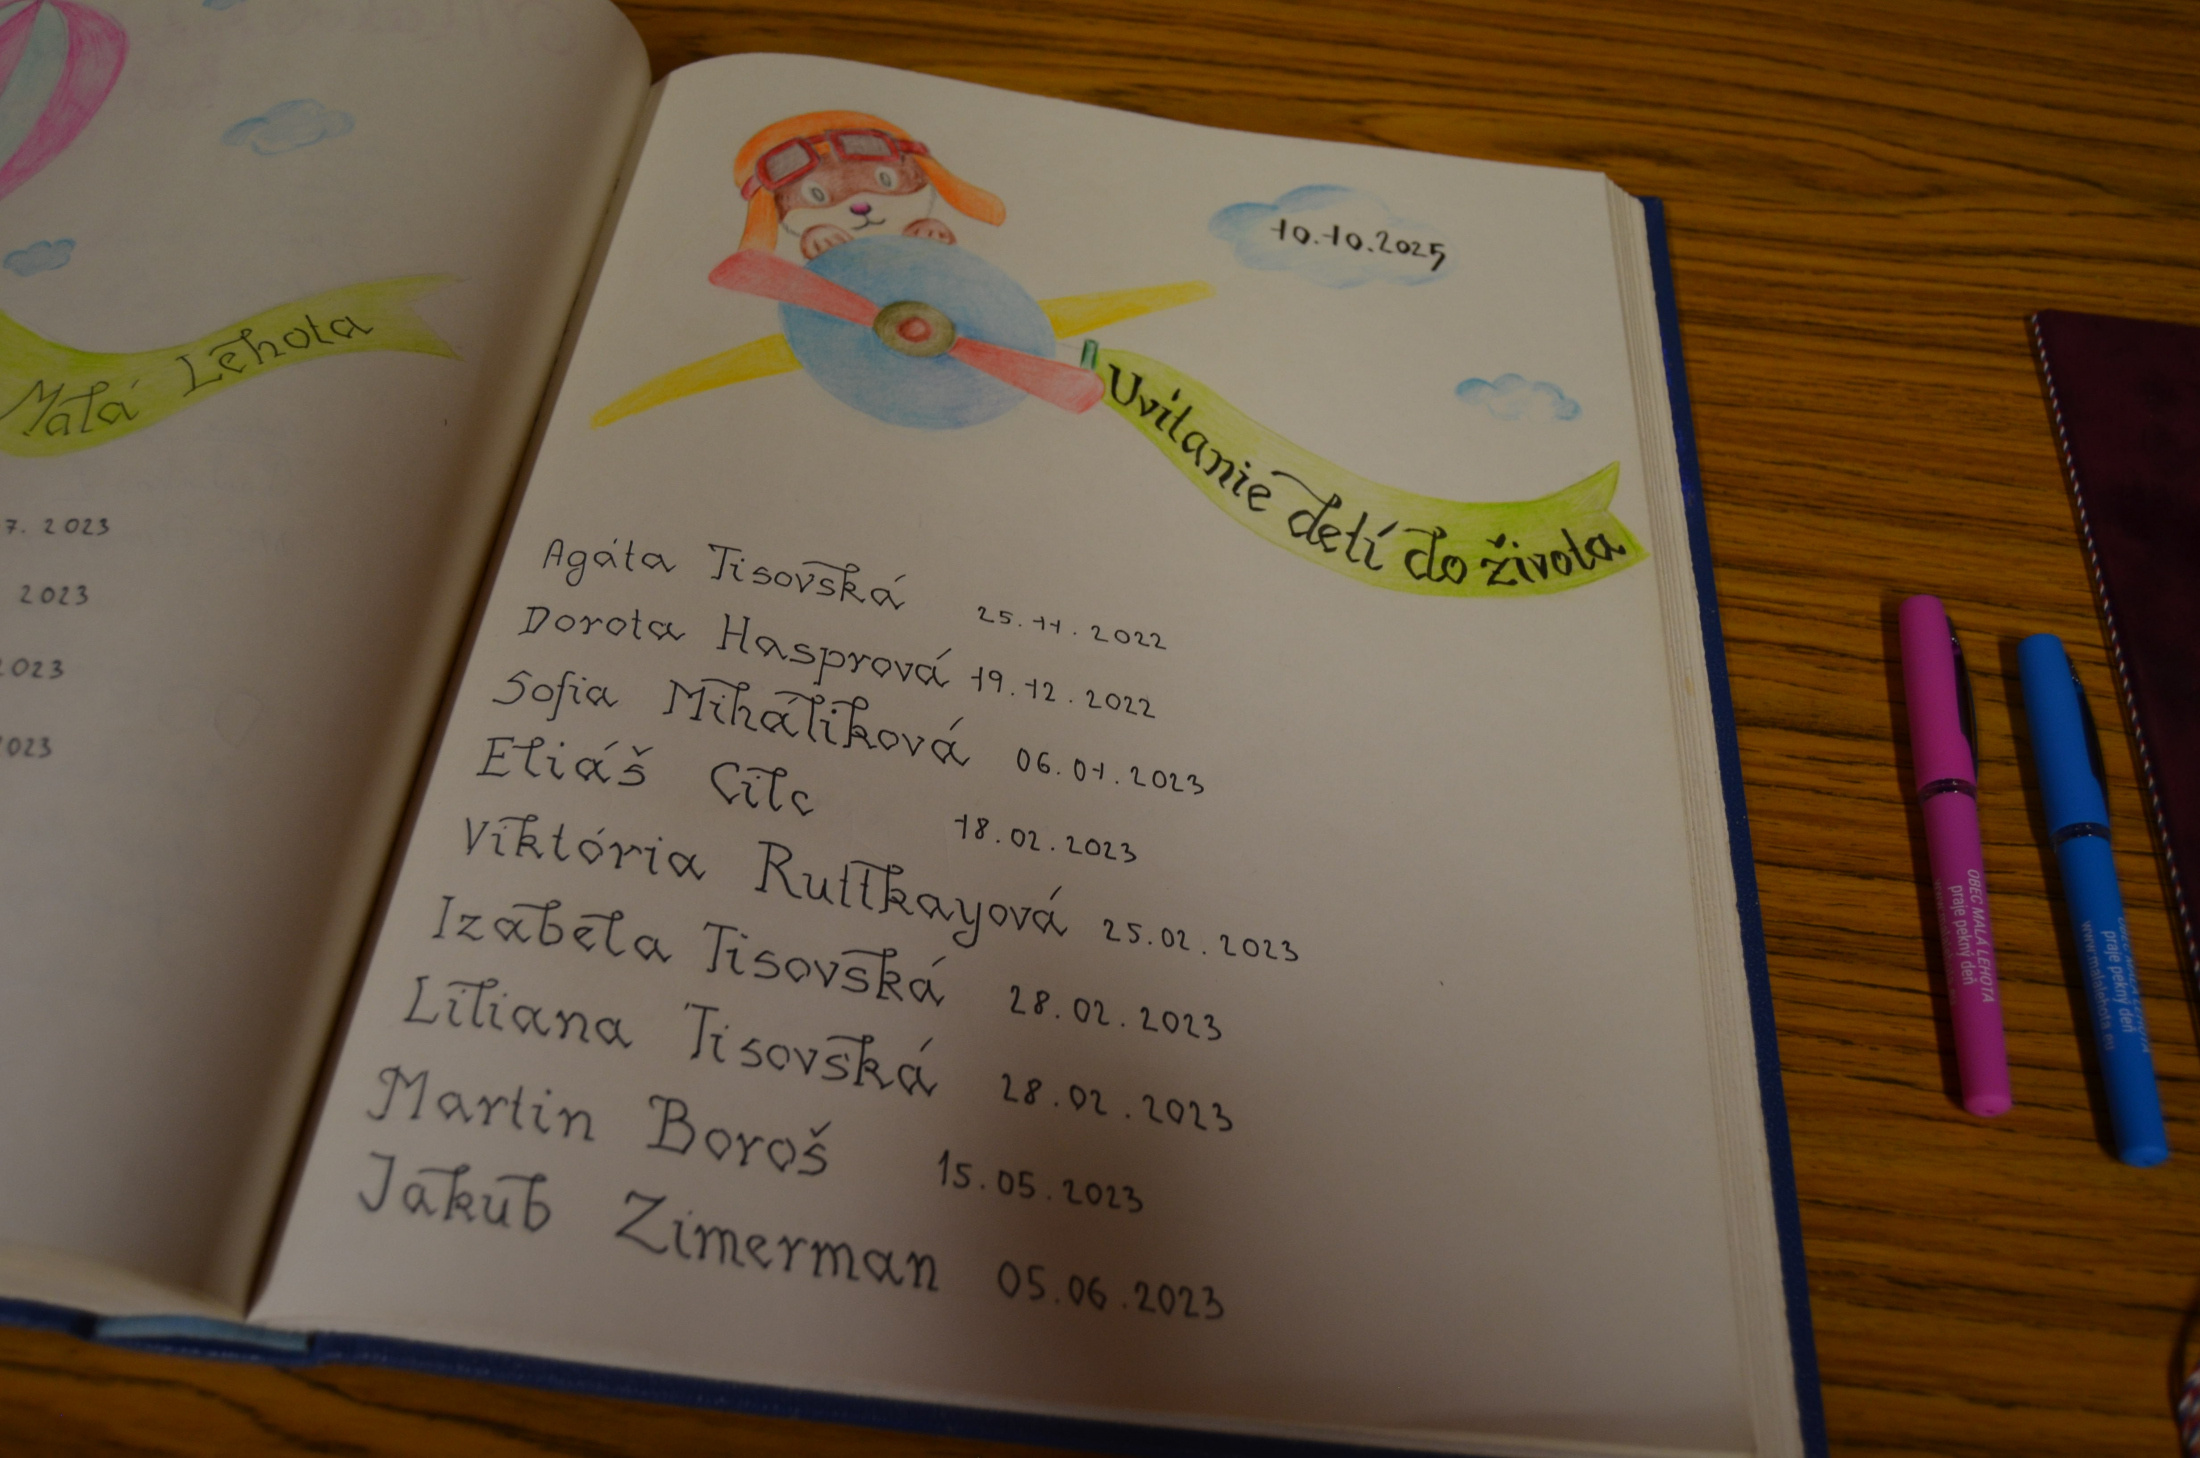 Malá Lehota
7. 2023
2023
2023
2023
10.10.2025
Uvítanie detí do života
Agáta Tisovská 25.11.2022
Dorota Hasprová 19.12.2022
Sofia Miháliková 06.01.2023
Eliáš Cílc 18.02.2023
Viktória Ruttkayová 25.02.2023
Izabela Tisovská 28.02.2023
Liliana Tisovská 28.02.2023
Martin Boroš 15.05.2023
Jakub Zimerman 05.06.2023
OBEC MALÁ LEHOTA
praje pekný deň
praje pekný deň
www.malalehota.eu